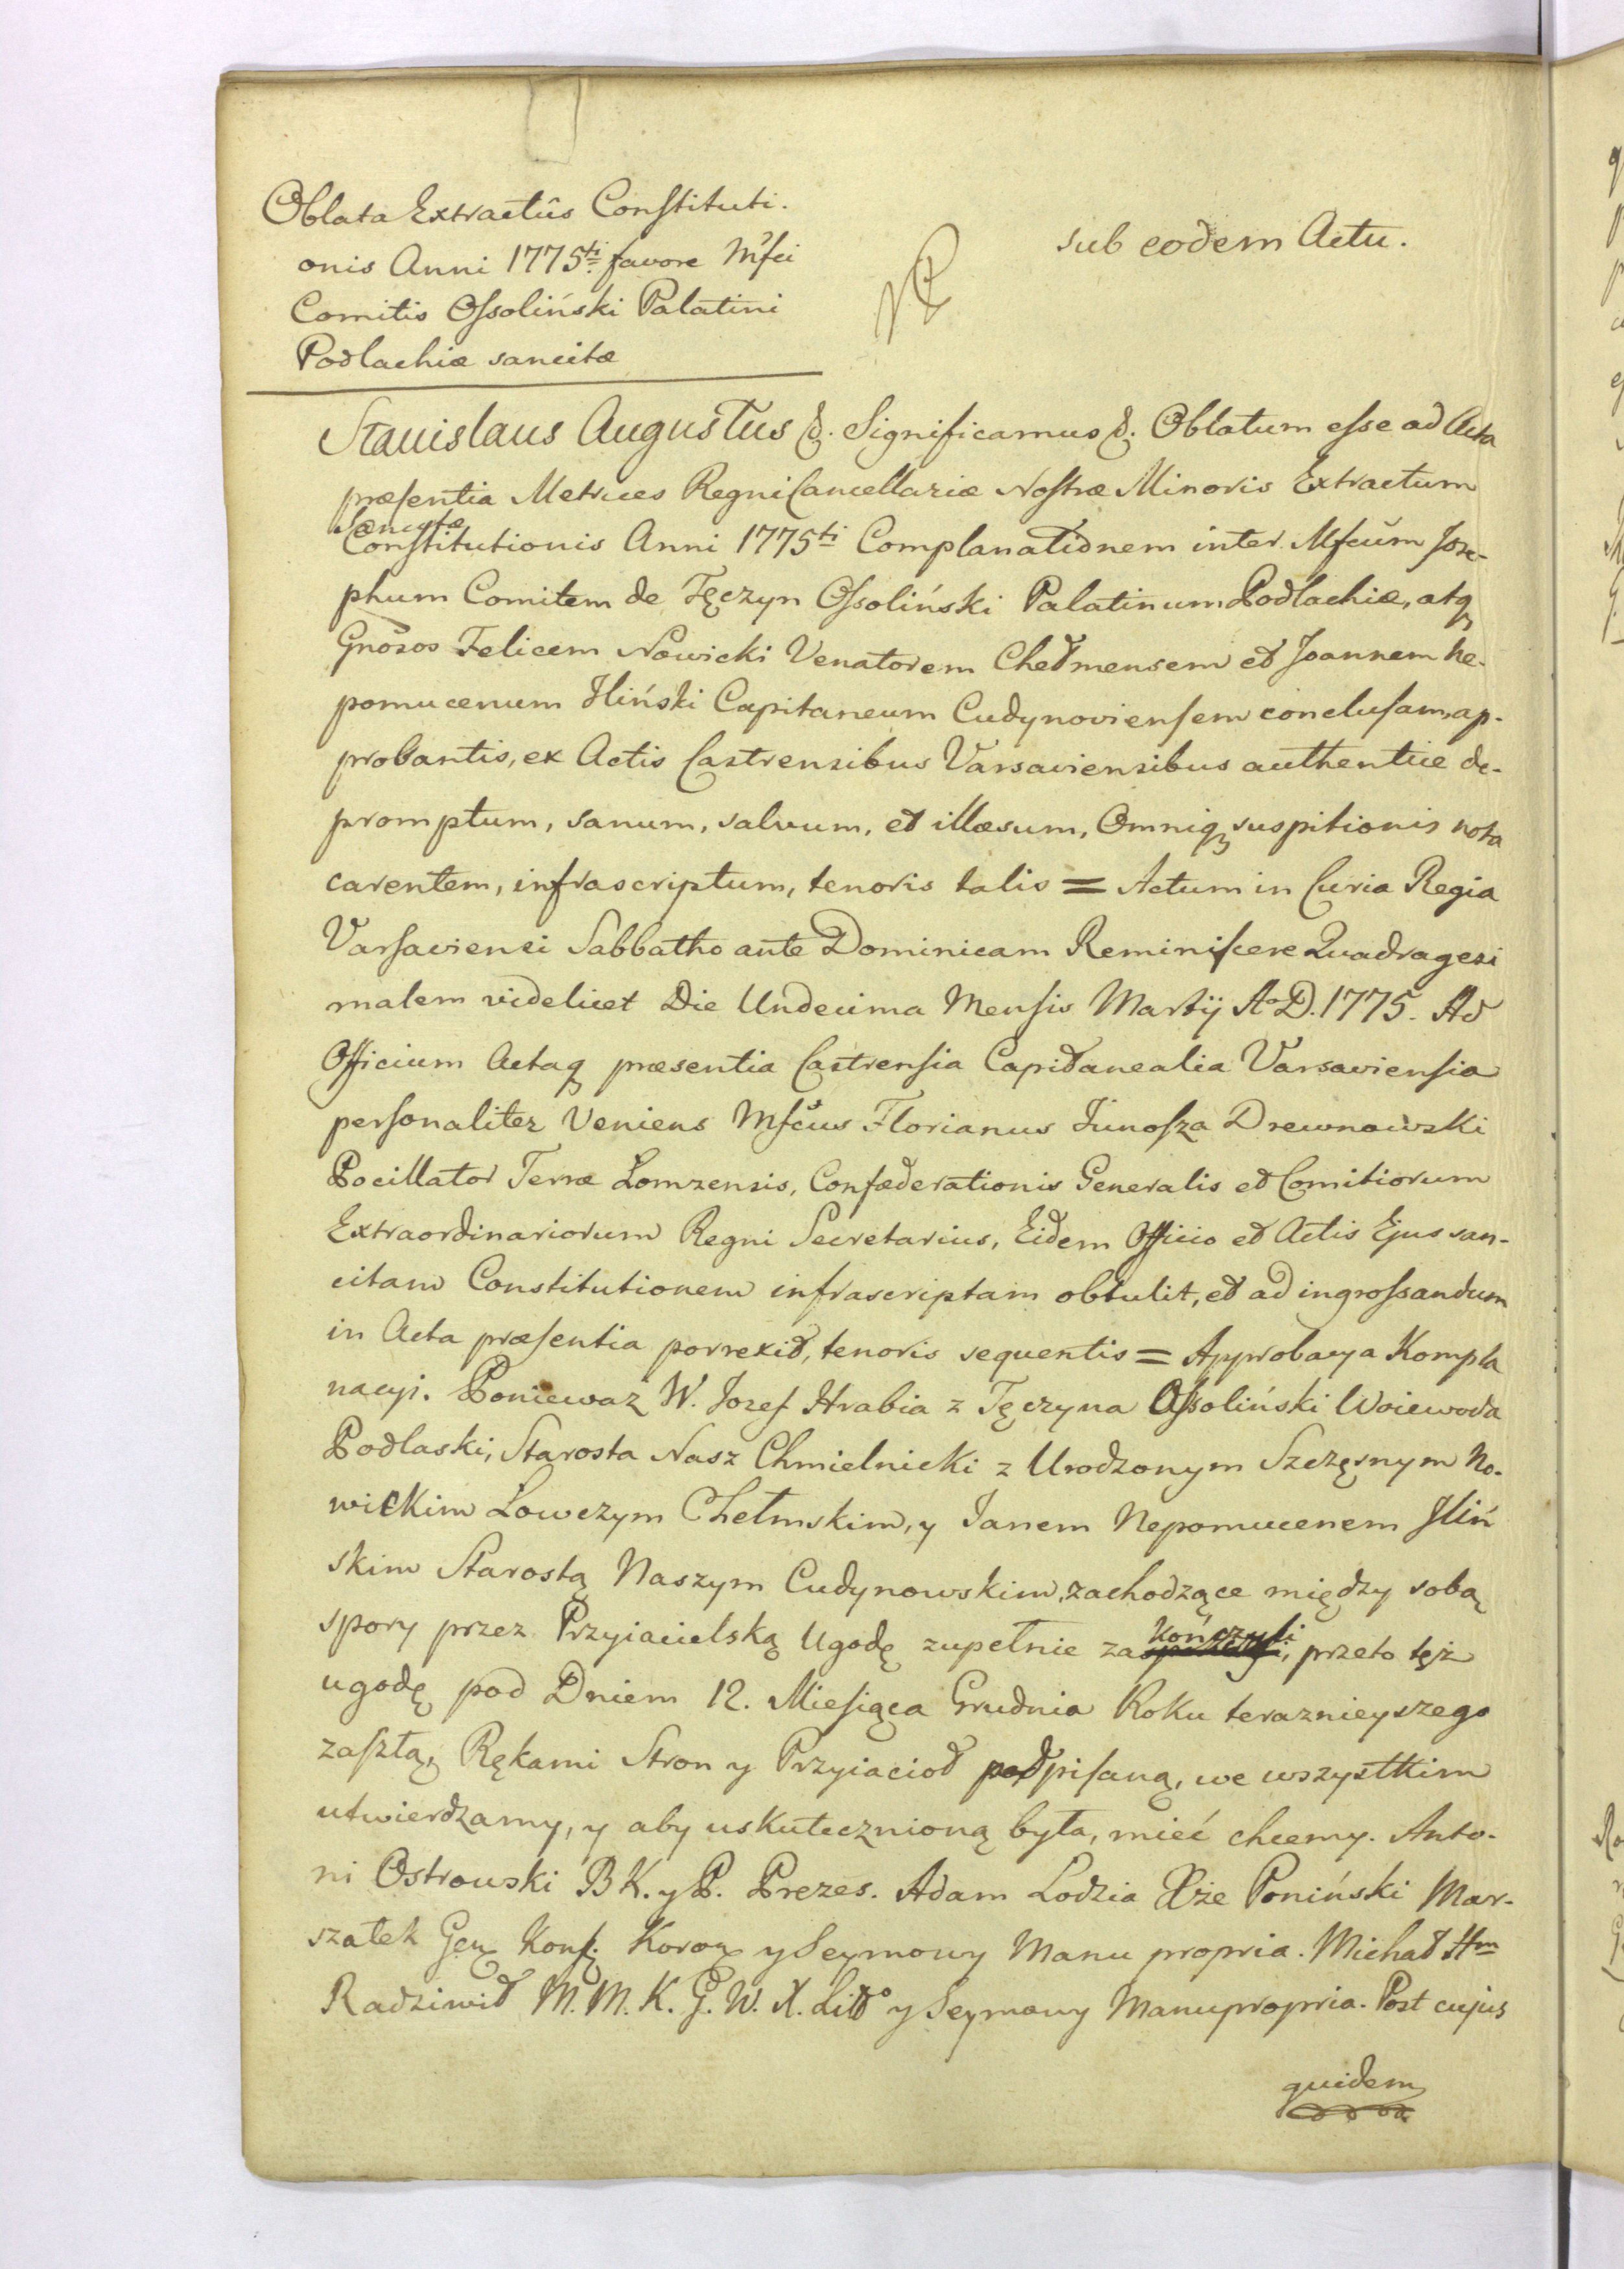 Oblata Extractûs Constituti.
onis Anni 1775ti favore Mfci
Comitis Ossoliński Palatini
Podlachiæ sancitæ
sub eodem Actu.
Stanislaus Augustus &. Significamus &. Oblatum esse ad Acta
præsentia Metrices Regni Cancellariæ Nostræ Minoris Extractum
Sancytæ
Constitutionis Anni 1775ti Complanationem inter Mfcum Jose-
phum Comitem de Tęczyn Ossoliński Palatinum Podlachiæ, atq
Gnosos Felicem Nowicki Venatorem Chełmensem et Joannem Ne-
pomucenum Iliński Capitaneum Cudynoviensem conclusam, ap-
probantis, ex Actis Castrensibus Varsaviensibus authentice de-
promptum, sanum, salvum, et illæsum, Omniq suspitionis nota
carentem, infrascriptum, tenoris talis = Actum in Curia Regia
Varsaviensi Sabbatho ante Dominicam Reminiscere Quadragesi
malem videlicet Die Undecima Mensis Martij A. D. 1775. Ad
Officium Actaq præsentia Castrensia Capitanealia Varsaviensia
personaliter Veniens Mfcus Florianus Junosza Drewnowski
Pocillator Terræ Lomzensis, Confæderationis Generalis et Comitiorum
Extraordinariorum Regni Secretarius, Eidem Officio et Actis Ejus san-
citam Constitutionem infrascriptam obtulit, et ad ingrossandum
in Acta præsentia porrexit, tenoris sequentis = Approbacya Kompla
nacyi. Ponieważ W. Jozef Hrabia z Tęczyna Ossoliński Woiewoda
Podlaski, Starosta Nasz Chmielnicki z Urodzonym Szczęsnym No-
wickim Lowczym Chełmskim, y Janem Nepomucenem Iliń
skim Starostą Naszym Cudynowskim, zachodzące między sobą
spory przez Przyiacielską Ugodę zupełnie zakończyli, przeto tęż
ugodę pod Dniem 12. Miesiąca Grudnia Roku teraznieyszego
zaszłą, Rękami Stron y Przyiacioł podpisaną, we wszystkim
utwierdzamy, y aby uskutecznioną była, mieć chcemy. Anto-
ni Ostrowski B K. y P. Prezes. Adam Lodzia Xże Poniński Mar-
szałek Gen Konf. Koron y Seymowy Manu propria. Michał Hm
Radziwił M. M. K. G. W. X. Litto y Seymowy Manupropria. Post cujus
quidem